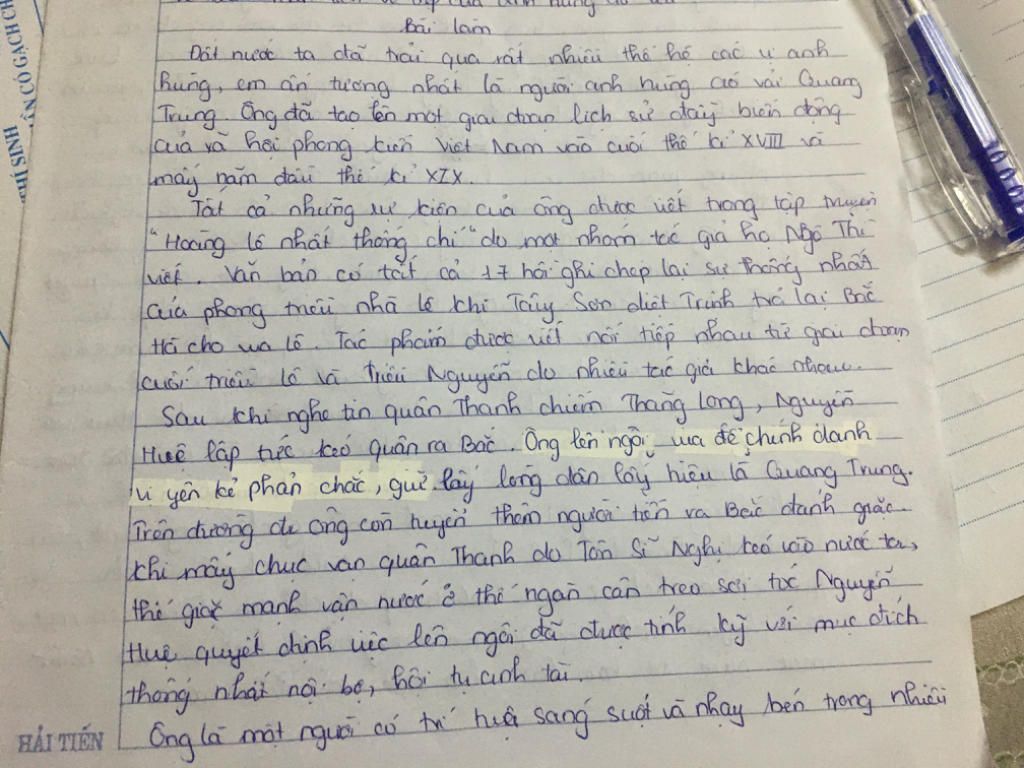 Bài làm
Đất nước ta đã trải qua rất nhiều thế hệ các vị anh
hùng, em ấn tượng nhất là người anh hùng áo vải Quang
Trung. Ông đã tạo lên một giai đoạn lịch sử đầy biến động
của xã hội phong kiến Việt Nam vào cuối thế kỉ XVIII và
mấy năm đầu thế kỉ XIX.
Tất cả những sự kiện của ông được viết trong tập truyện
"Hoàng lê nhất thống chí" do một nhóm tác giả họ Ngô Thì
viết. Văn bản có tất cả 17 hồi ghi chép lại sự thống nhất
của phong triều nhà lê khi Tây Sơn diệt Trịnh trả lại Bắc
Hà cho vua lê. Tác phẩm được viết nối tiếp nhau từ giai đoạn
cuối triều lê và triều Nguyễn do nhiều tác giả khác nhau.
Sau khi nghe tin quân Thanh chiếm Thăng long, Nguyễn
Huệ lập tức kéo quân ra Bắc. Ông lên ngôi vua để chính danh
vị yên kẻ phản chắc, giữ lấy lòng dân lấy hiệu là Quang Trung.
Trên đường đi ông còn tuyển thêm người tiến ra Bắc đánh giặc.
khi mấy chục vạn quân Thanh do Tôn Sĩ Nghị kéo vào nước ta,
thế giặc mạnh vận nước ở thế ngàn cân treo sợi tóc Nguyễn
Huệ quyết định việc lên ngôi đã được tính kỹ với mục đích
thống nhất nội bộ, hội tụ anh tài.
Ông là một người có trí tuệ sáng suốt và nhạy bén trong nhiều
HẢI TIẾN
THÍ SINH